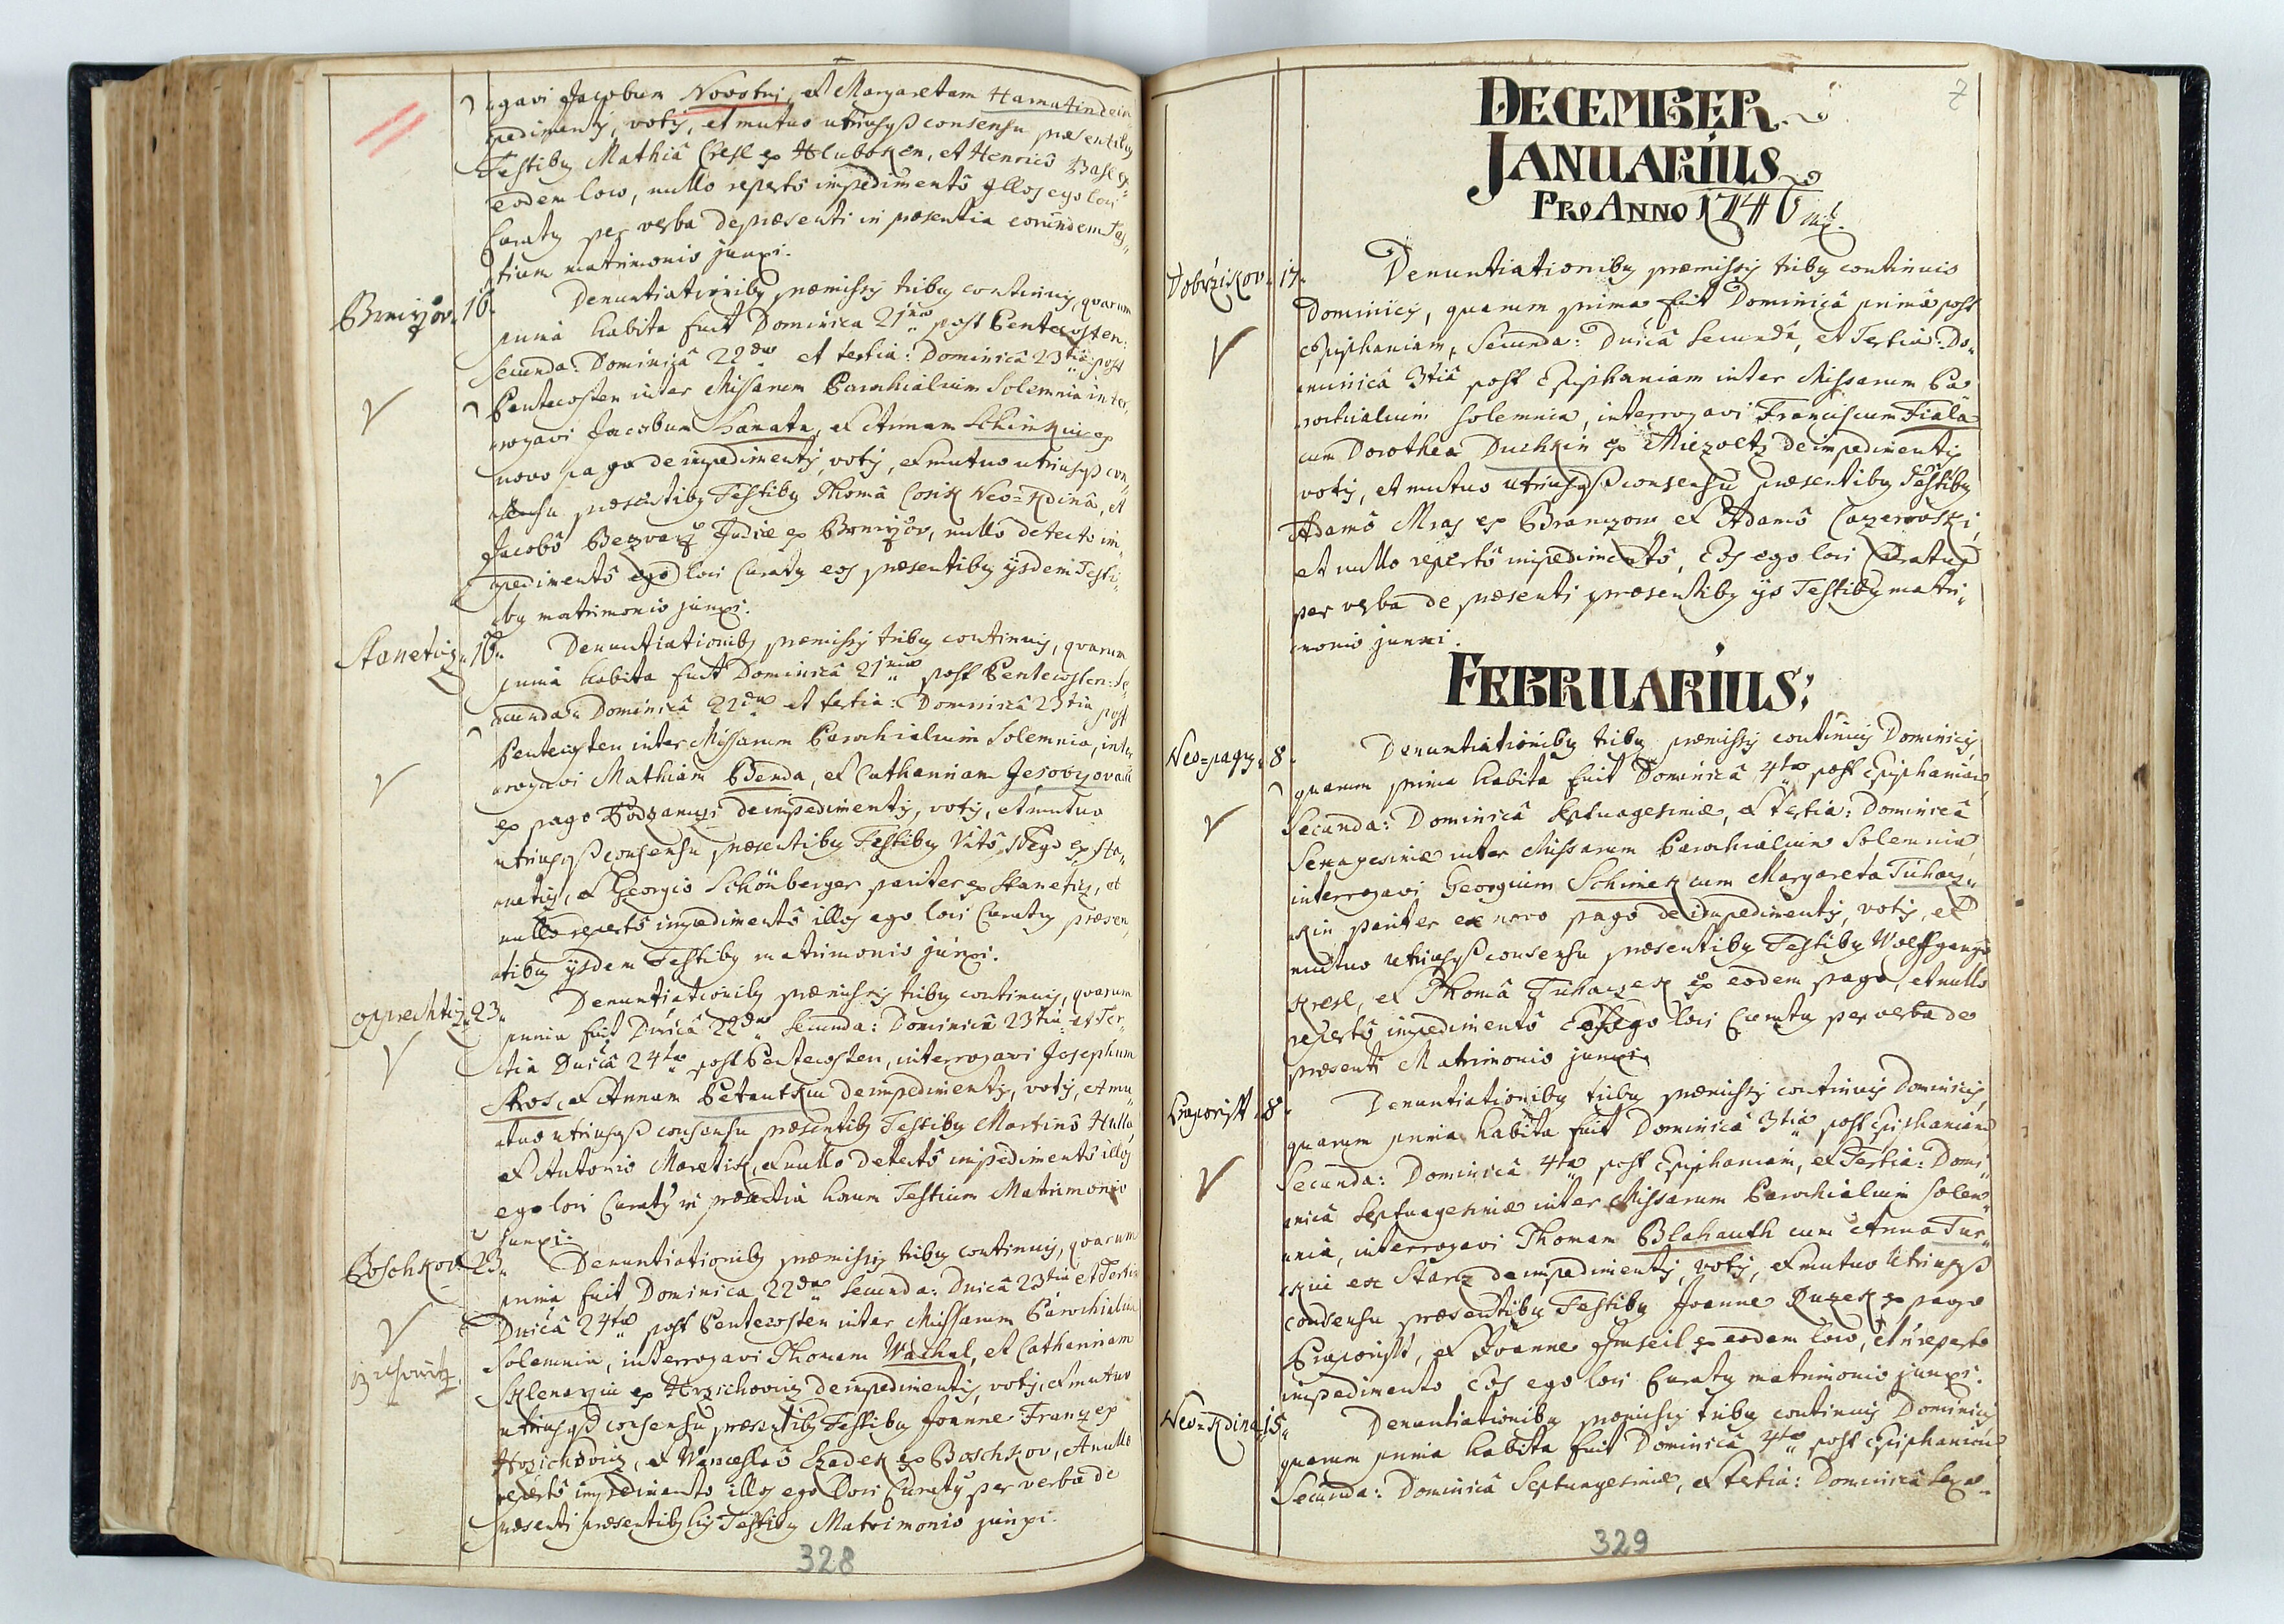 gavi Jacobum Novotni, et Margaretam Hamatin de im
pedimentis, votis, et mutuo utriusqs consensu præsentibus
Testibus Mathiâ Cresl ex Hluboken, et Henricô Basl ex
eodem loco, nullo repertô impedimentô illos ego loci
Curatus per verba de præsenti in præsentia eorundem Tes„
tium matrimonio junxi.
16. Denuntiationibus præmissis tribus continuis, quarum
prima habita fuit Dominica 21ma post Pentecosten:
Secunda: Dominicâ 22da et tertia: Dominicâ 23tia post
Pentecosten inter Missarum Parochialium Solemnia inter„
rogavi Jacobum Hanata, et Annam Schinkin ex
novo pago de impedimentis, votis, et mutuo utriusqs con„
sensu præsentibus Testibus Thomâ Cosik Neo=Kdinâ, et
Jacobô Judice ex nullô detecto im„
pedimentô ego loci Curatus eos præsentibus ijsdem Testi„
bus matrimonio junxi.
Stanetiz. 16. Denuntiationibus præmissis tribus continuis, quarum
prima habita fuit Dominicâ 21ma post Pentecosten: Se„
cunda: Dominicâ 22da et tertia: Dominicâ 23tia post
Pentecosten inter Missarum Parochialium Solemnia, inter„
rogavi Mathiam Benda, et Catharinam
ex pago de impedimentis, votis, et mutuo
utriusqs consensu præsentibus Testibus Vitô ex Sta„
netiz, et Georgio Schönberger pariter ex Stanetiz, et
nullo repertô impedimentô illos ego loci Curatus præsen„
tibus ijsdem Testibus matrimonio junxi.
Opprechtiz. 23. Denuntiationibus præmissis tribus continuis, quarum
prima fuit Dnicâ 22da Secunda: Dominicâ 23tia et Ter„
tia Dnicâ 24ta post Pentecosten, interrogavi Josephum
et Annam Petautkin de impedimentis, votis, et mu„
tuo utriusqs consensu præsentibs Testibus Martinô Hulla,
et Antonio Maretik, et nullo detectô impedimentô illos
ego loci Curatus in præsentia horum Testium Matrimonio
junxi.
Boschkov. 23. Denuntiationibs præmissis tribus continuis, quarum
prima fuit Dominica 22da Secunda: Dnicâ 23tia et Tertia
Dnicâ 24ta post Pentecosten inter Missarum Parochialium
Solemnia, interrogavi Thomam Wachal, et Catharinam
Sklenarzin ex Hrzichoviz de impedimentis, votis, et mutuo
utriusqs consensu præsentibs Testibus Joanne Franz ex
Hrzichoviz, et Wenceslaô Hadek ex Boschkov, et nullô
repertô impedimento illos ego loci Curatus per verba de
præsenti præsentibus his Testibus Matrimonio junxi.
328
7
DECEMBER
JANUARIUS
PRO ANNO 1746
Dobrzikov. 17. Denuntiationibus præmissis tribus continuis
Dominicis, quarum prima fuit Dominicâ primâ post
Epiphaniam, Secunda: Dnicâ Secundâ, et Tertia: Do„
minicâ 3tiâ post Epiphaniam inter Missarum Pa„
rochialium solemnia, interrogavi Franciscum Fiala
cum Dorothea Duchkin ex Miezoltz de impedimentis
votis, et mutuo utriusqs consensu præsentibus Testibus
Adamô Mraz ex et Adamô
et nullo repertô impedimentô, Eos ego loci Curatus
per verba de præsenti præsentibus ijs Testibus matri„
monio junxi.
FEBRUARIUS;
Neo=pagus. 8. Denuntiationibus tribus præmissis continuis Dominicis
quarum prima habita fuit Dominicâ 4ta post Epiphaniam,
Secunda: Dominicâ Septuagesimæ, et tertia: Dominicâ
Sexagesimæ inter Missarum Parochialium Solemnia,
interrogavi Georgium Schinek cum Margareta Tuhacz„
kin pariter ex novo pago de impedimentis, votis, et
mutuo utriusqs consensu præsentibus Testibus Wolffgangô
Kresl, et Thomâ Tuhaczek ex eodem pago, et nullo
repertô impedimentô Eos ego loci Curatus per verba de
præsenti Matrimonio junxi.
8. Denuntiationibus tribus præmissis continuis Dominicis,
quarum prima habita fuit Dominicâ 3tia post Epiphaniam
Secunda: Dominicâ 4ta post Epiphaniam, et Tertia: Domi„
nicâ Septuagesimæ inter Missarum Parochialium Solem„
nia, interrogavi Thomam Blahauth cum Anna Tur„
kin ex Stanz de impedimentis, votis, et mutuo utriusqs
consensu præsentibus Testibus Joanne Ruzek ex pago
et Joanne ex eodem loco, et n reperto
impedimento Eos ego loci Curatus matrimonio junxi.
Neo=Kdina. 15. Denuntiationibus præmissis tribus continuis Dominicis
quarum prima habita fuit Dominicâ 4ta post Epiphaniam
Secunda: Dominicâ Septuagesimæ, et tertia: Dominicâ Sexa„
329